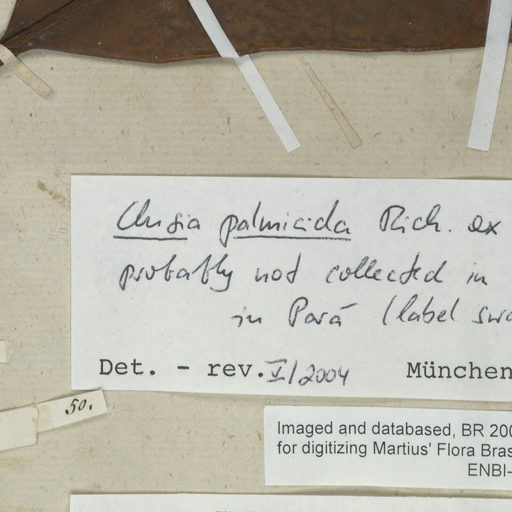 Clusia palmicida Rich. ex
probably not collected in
in Pará (label swa
Det. - rev. V/2004 München
.50.
Imaged and databased, BR 200
for digitizing Martius' Flora Bras
ENBI-